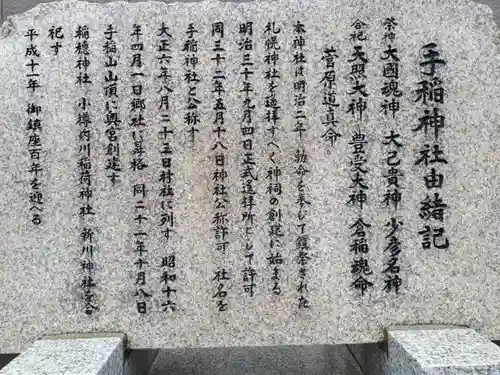 手稲神社由緒記
祭神 大國魂神 大己貴神 少彦名神
合祀 天照大神 豊受大神 倉稲魂命
菅原道真命
本神社は明治二年 勅命を奉じて鎮祭された
札幌神社を遥拝すべく神祠の創建に始まる
明治三十年九月四日正式遥拝所として許可
同三十二年五月十八日神社公称許可 社名を
手稲神社と公称す
大正六年八月二十五日村社に列す 昭和十六
年四月一日郷社に昇格 同二十一年十月八日
手稲山山頂に奥宮創建す
稲穂神社 小樽内川稲荷神社 新川神社を合
祀す
平成十一年 御鎮座百年を迎へる